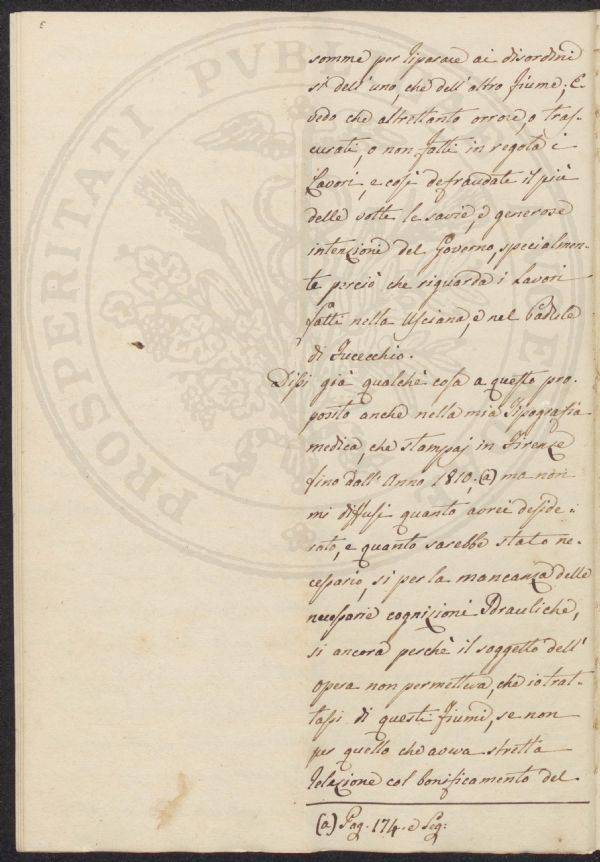 somme per riparare ai disordini
sì dell' uno, che dell' altro fiume; E
vedo che altrettanto errore, o tras-
curati, o non fatti in regola i
Lavori, e così defraudate il più
delle volte le savie, e generose
intenzione del Governo, specialmen-
te perciò che riguarda i Lavori
fatti nella Usciana, e nel Padule
di Fucecchio.
Dissi già qualchè cosa a questo pro-
posito anche nella mia Tipografia
medica, che stampaj in Firenze
fino dall' Anno 1810. (a) ma non
mi diffusi quanto avrei deside:
rato, e quanto sarebbe stato ne-
cessario, sì per la mancanza delle
necessarie cognizioni Idrauliche,
sì ancora perchè il soggetto dell'
opera non permetteva, che io trat-
tassi di questi fiumi, se non
per quello che aveva stretta
relazione col bonificamento del
(a) Pag. 174. e Seg:
PROSPERITATI PVBLICAE